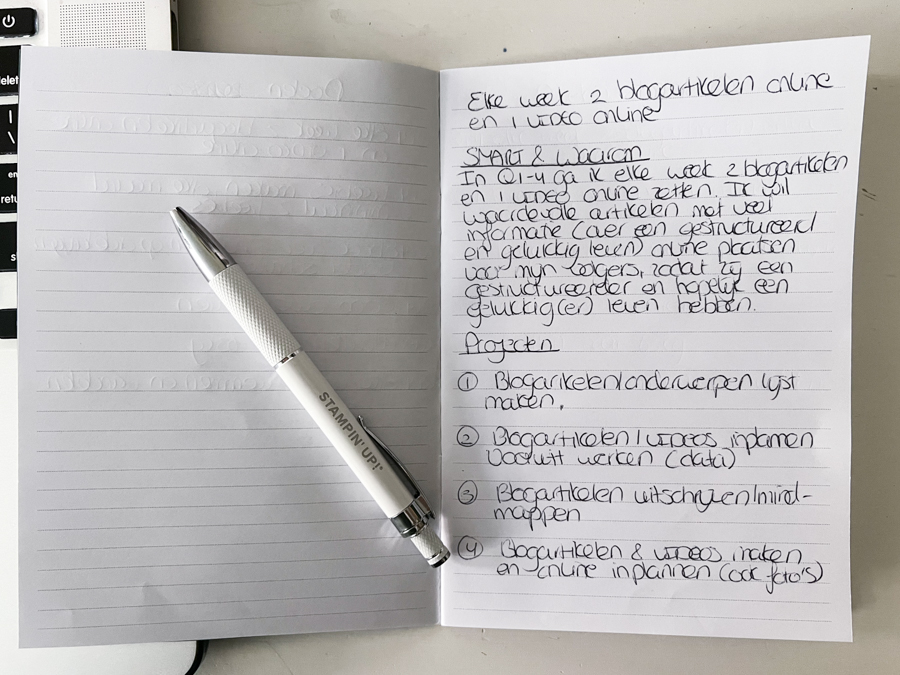 delet
|
\
en
retu
s
STAMPIN' UP!®
Elke week 2 blogartikelen online
en 1 VIDEO online
SMART & Waarom
In Q1-4 ga ik elke week 2 blogartikelen
en 1 VIDEO online zetten. Ik wil
waardevolle artikelen met veel
informatie (over een gestructureerd
en gelukkig leven) online plaatsen
voor mijn volgers, zodat zij een
gestructureerder en hopelijk een
gelukkig(er) leven hebben.
Projecten
① Blogartikelen/onderwerpen lijst
maken.
② Blogartikelen / VIDEOS inplannen
Vooruit werken (data)
③ Blogartikelen uitschrijven/mind-
mappen
④ Blogartikelen & VIDEOS maken
en online inplannen (ook foto's)